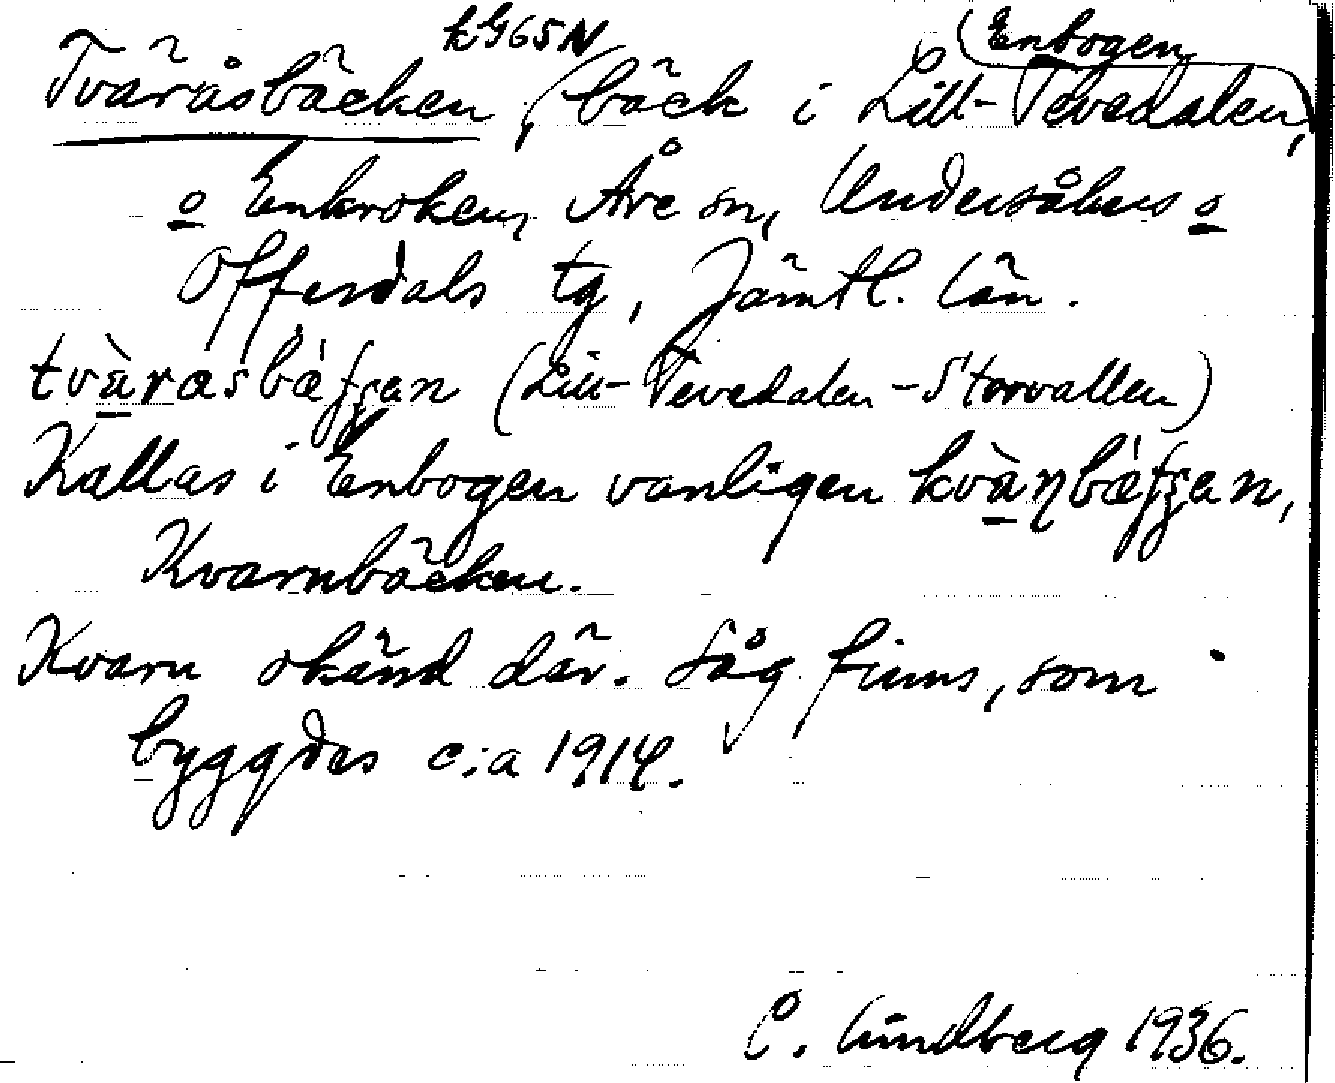 kG65N (Enbogen
Tväråsbäcken, (bäck i Lill-Tevedalen,
o Enkroken, Åre sn, Undersåkers o
Offerdals tg, Jämtl. län.
(Lill-Tevedalen-Storvallen)
Kallas i Enbogen vanligen
Kvarnbäcken.
Kvarn okänd där. Såg finns, som
byggdes c:a 1914.
C. Lundberg 1936.